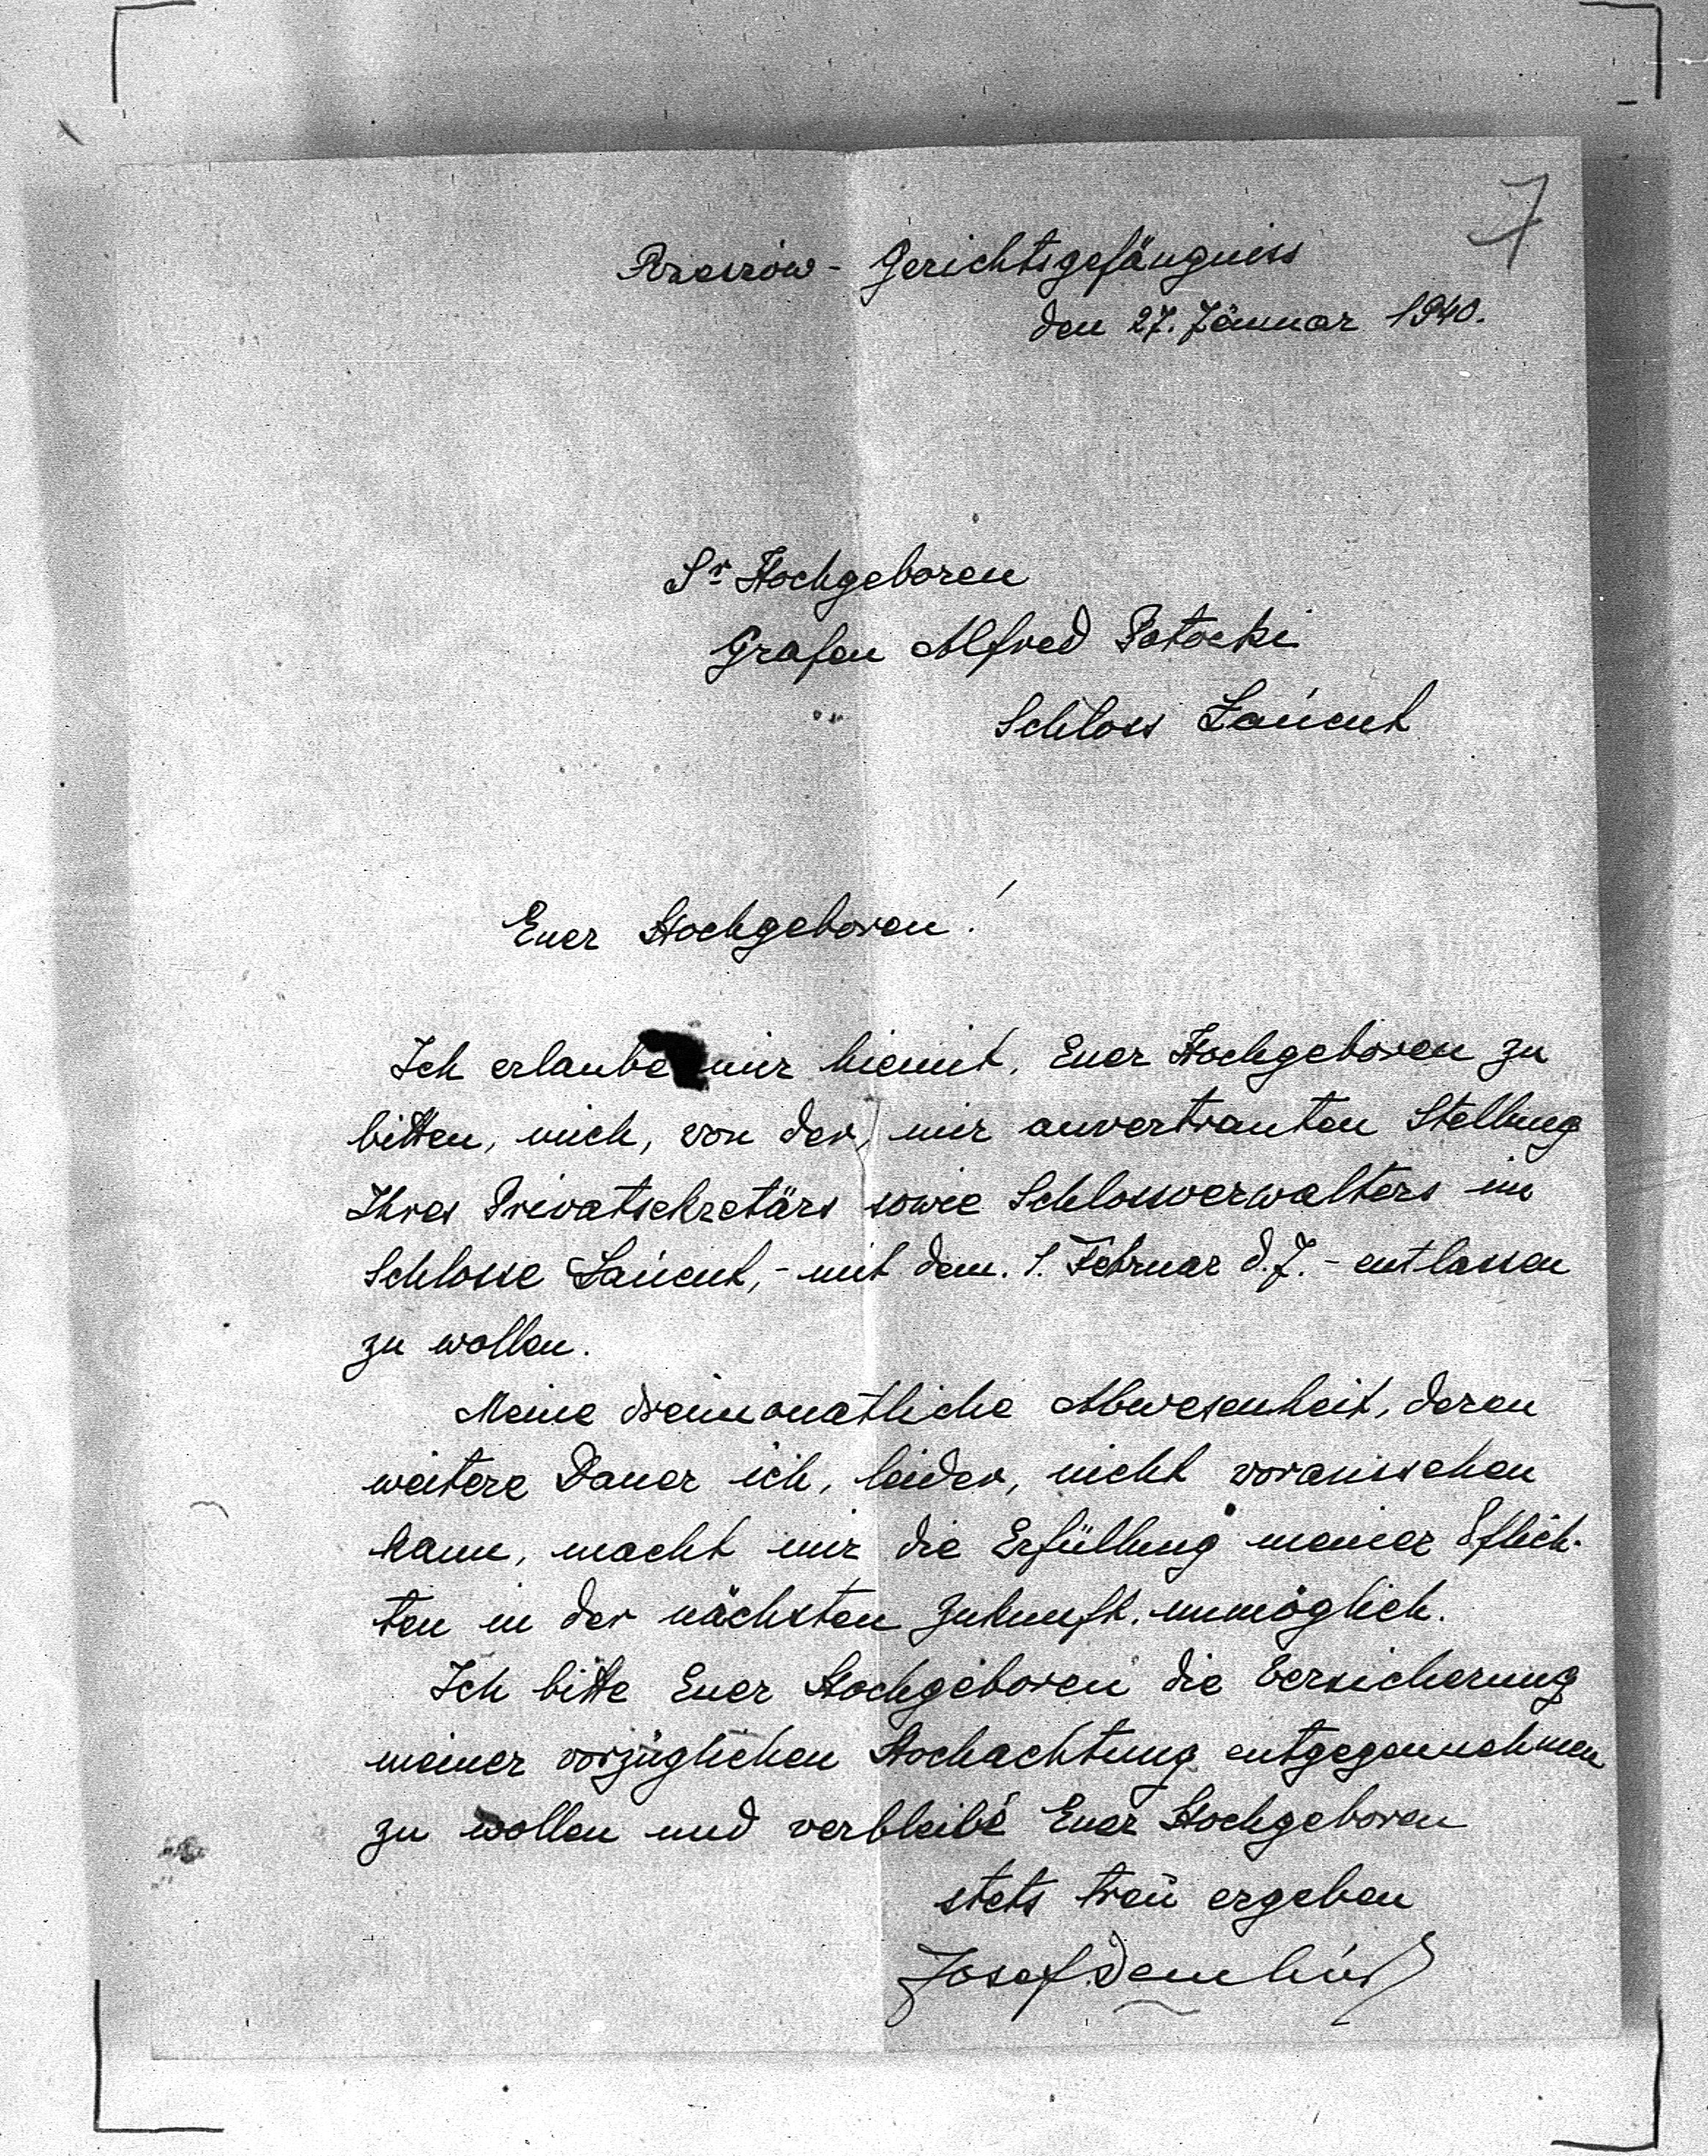 7
Rzeszów - Gerichtsgefängniss
den 27. Jänner 1940.
Sr Hochgeboren
Grafen Alfred Potocki
Schloss Łańcut
Euer Hochgeboren!
Ich erlaube mir hiemit, Euer Hochgeboren zu
bitten, mich, von der, mir anvertrauten Stellung
Ihres Privatsekretärs sowie Schlossverwalters im
Schlosse Łańcut, - mit dem. 1. Februar d.J. - entlassen
zu wollen.
Meine dreimonatliche Abwesenheit, deren
weitere Dauer ich, leider, nicht voraussehen
kann, macht mir die Erfüllung meiner Pflich-
ten in der nächsten Zukunft. unmöglich.
Ich bitte Euer Hochgeboren die Versicherung
meiner vorzüglichen Hochachtung entgegennehmen
zu wollen und verbleibe Euer Hochgeboren
stets treu ergeben
Josef